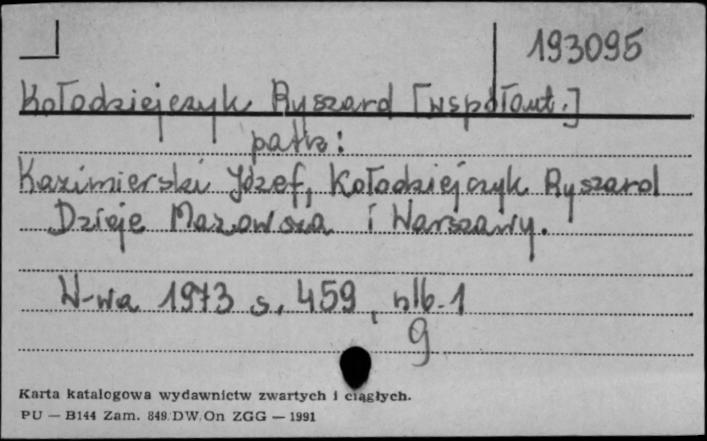 193095
Kołodziejczyk Ryszard [współaut.]
patrz:
Kazimierski Józef, Kołodziejczyk Ryszard
Dzieje Mazowsza i Warszawy.
W-wa 1973 s. 459, nlb. 1
9
Karta katalogowa wydawnictw zwartych i ciągłych.
PU — B144 Zam. 849 DW/On ZGG — 1991